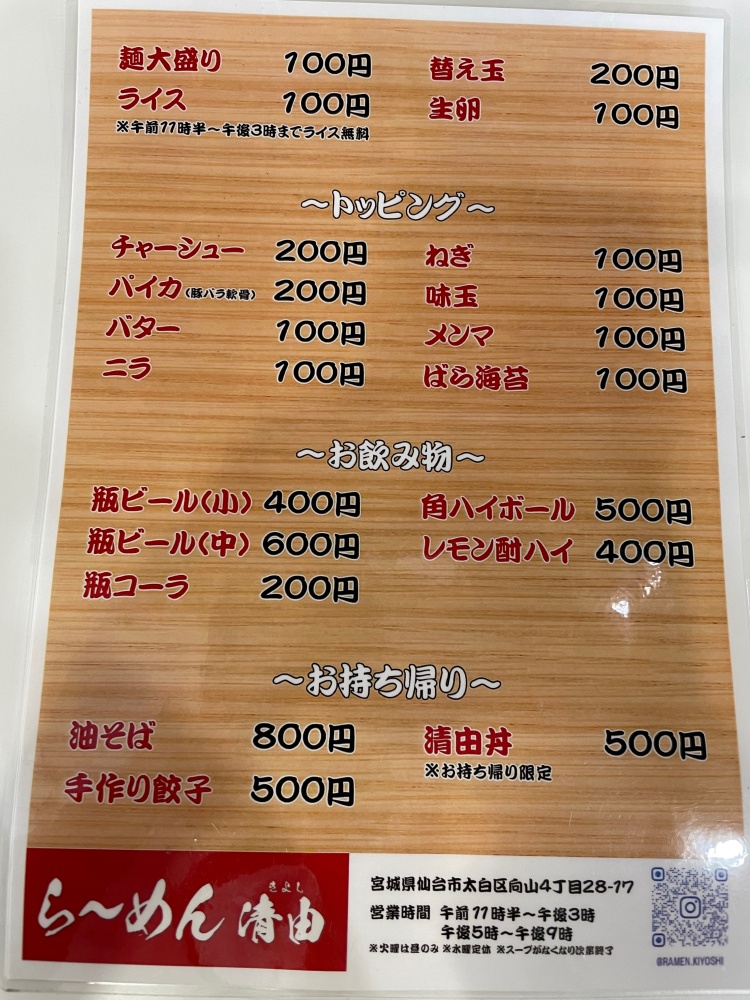 麺大盛り 100円 替え玉 200円
ライス 100円 生卵 100円
※午前11時半～午後3時までライス無料
～トッピング～
チャーシュー 200円 ねぎ 100円
パイカ(豚バラ軟骨) 200円 味玉 100円
バター 100円 メンマ 100円
ニラ 100円 ばら海苔 100円
～お飲み物～
瓶ビール(小) 400円 角ハイボール 500円
瓶ビール(中) 600円 レモン酎ハイ 400円
瓶コーラ 200円
～お持ち帰り～
油そば 800円 清由丼 500円
※お持ち帰り限定
手作り餃子 500円
きよし
ら～めん 清由
宮城県仙台市太白区向山4丁目28-17
営業時間 午前11時半～午後3時
午後5時～午後9時
※火曜は昼のみ ※水曜定休 ※スープがなくなり次第終了
@RAMEN.KIYOSHI